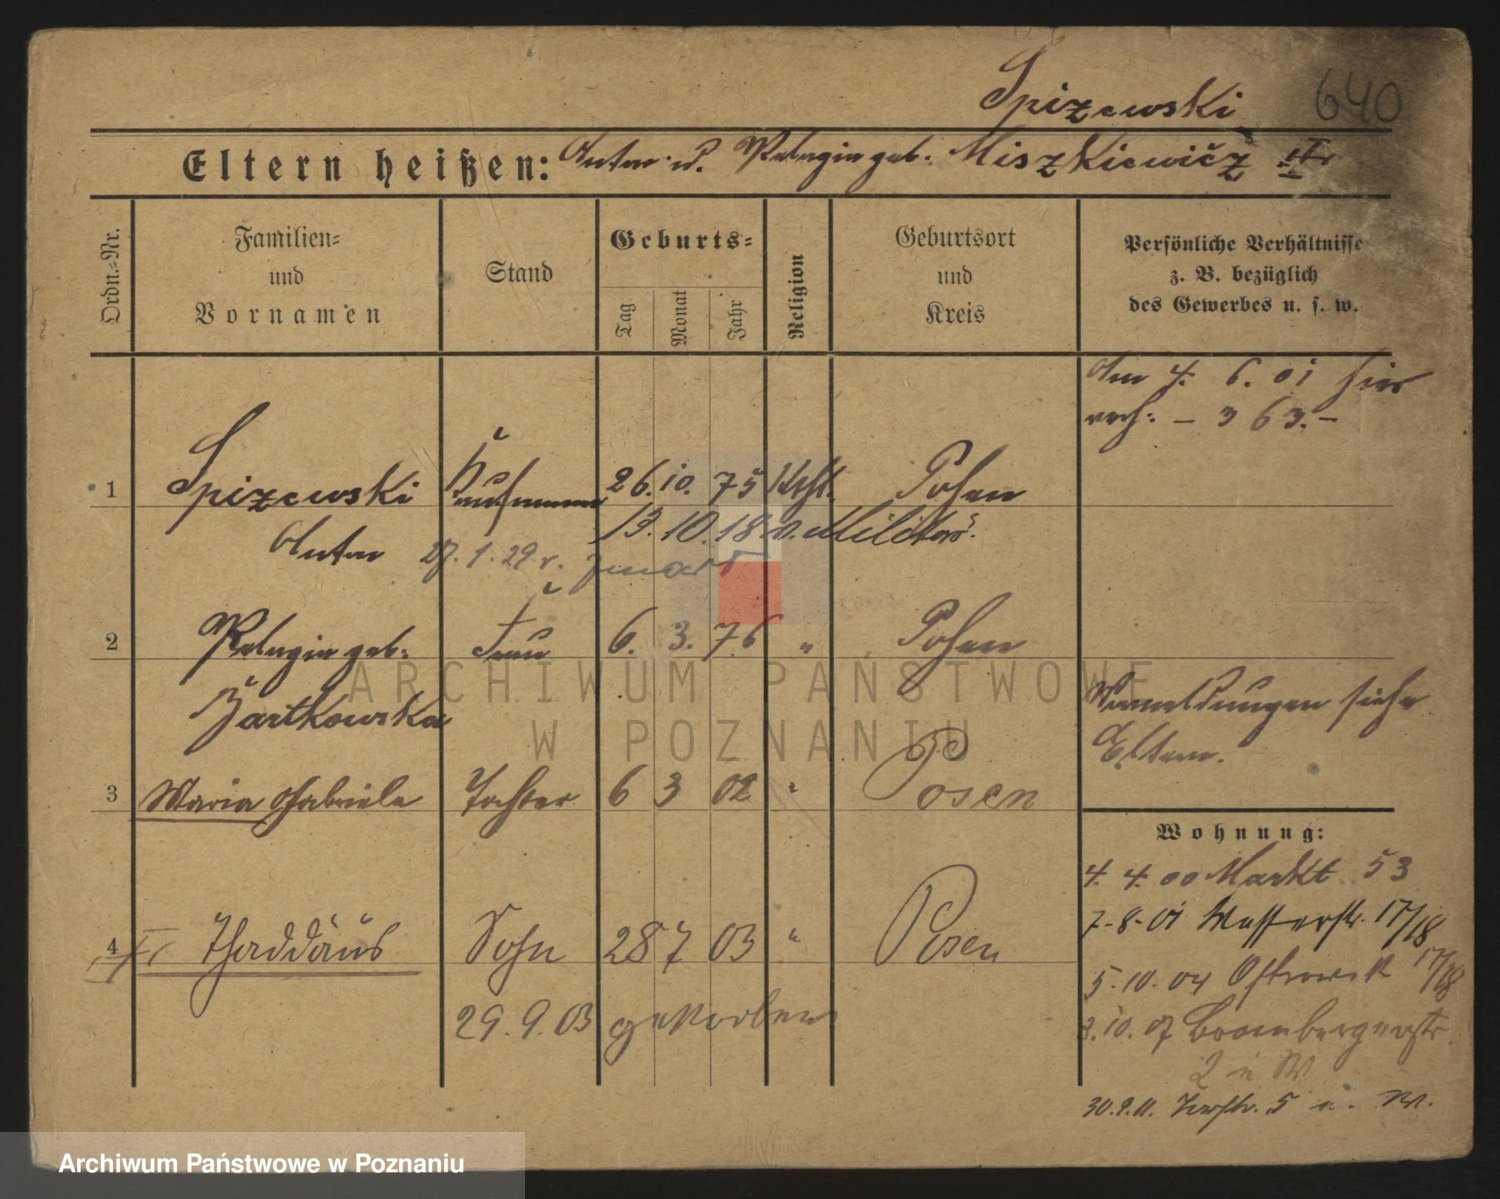 Spizewski 640
Eltern heißen: Anton u. Pelagia geb. Miszkiewicz
Ordn.=Nr.
Familien=
und
Vornamen
Stand
Geburts=
Tag
Monat
Jahr
Religion
Geburtsort
und
Kreis
Persönliche Verhältnisse
z. B. bezüglich
des Gewerbes u. s. w.
Am 4. 6. 01 hier
– 363. –
1 Spizewski Kaufmann 26. 10. 75 kath. Posen
Anton
13. 10. 18 v. Militär.
27. 1. 29 v.
2 Pelagia geb. Frau 6. 3. 76 " Posen
Bartkowska
Anmeldungen siehe
Eltern.
3 Maria Gabriele Tochter 6 3 02 " Posen
4 Thaddäus Sohn 28 7 03 " Posen
29. 9. 03 gestorben
Wohnung:
4. 4. 00 Markt 53
7-8-01 Wasserstr. 17/18
5. 10. 04 17/18
3. 10. 07 Brombergerstr.
2 u W
30. 9. 11. 5 u. W.
ARCHIWUM PAŃSTWOWE
W POZNANIU
Archiwum Państwowe w Poznaniu